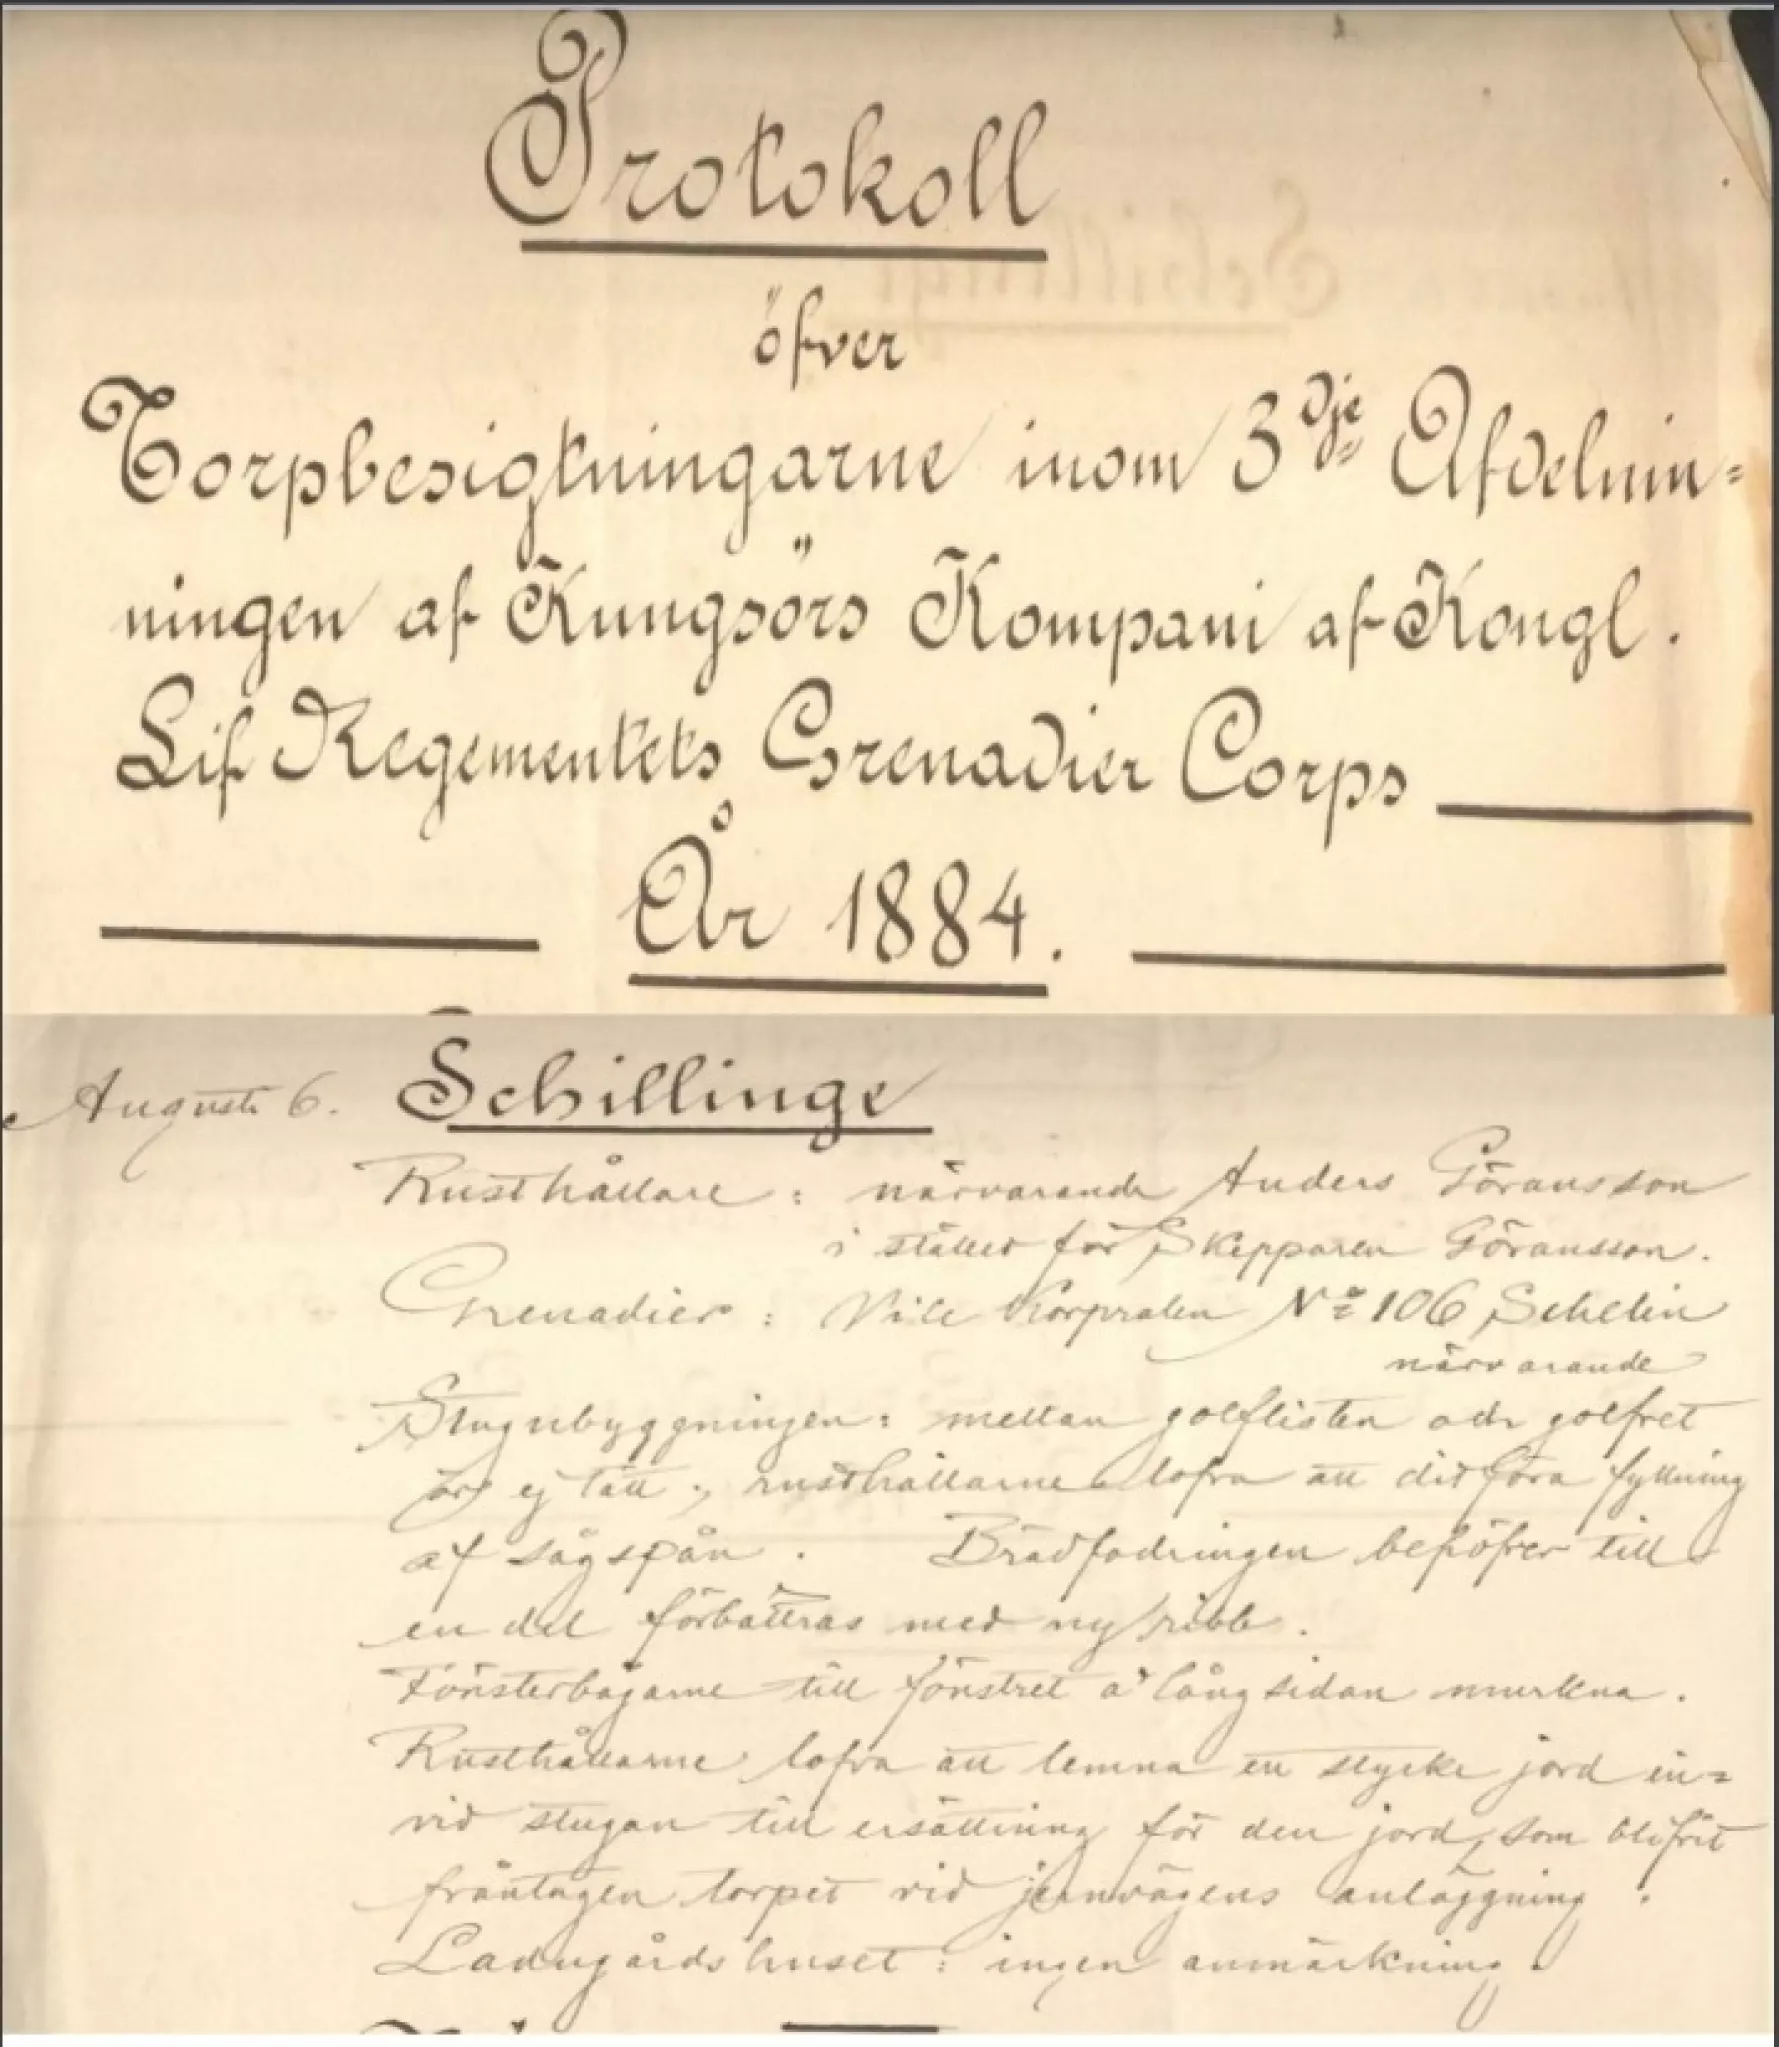 Protokoll
öfver
Torpbesigtningarne inom 3dje Afdelnin=
ningen af Kungsörs Kompani af Kongl.
Lif Regementets Grenadier Corps
År 1884.
Augusti 6. Schillinge
Rusthållare : närvarande Anders Göransson
i stället för Skepparen Göransson.
Grenadier : Vice Korpralen No 106 Schelin
närvarande
Stugubyggningen : mellan golflisten och golfvet
är ej tätt ; rusthållarne lofva att ditföra fyllning
af sågspån . Brädfodringen behöfver till
en del förbättras med ny ribb .
Fönsterbågarne till fönstret å långsidan murkna .
Rusthållarne lofva att lemna en stycke jord in=
vid stugan till ersättning för den jord, som blifvit
fråntagen torpet vid jernvägens anläggning .
Ladugårdshuset : ingen anmärkning .